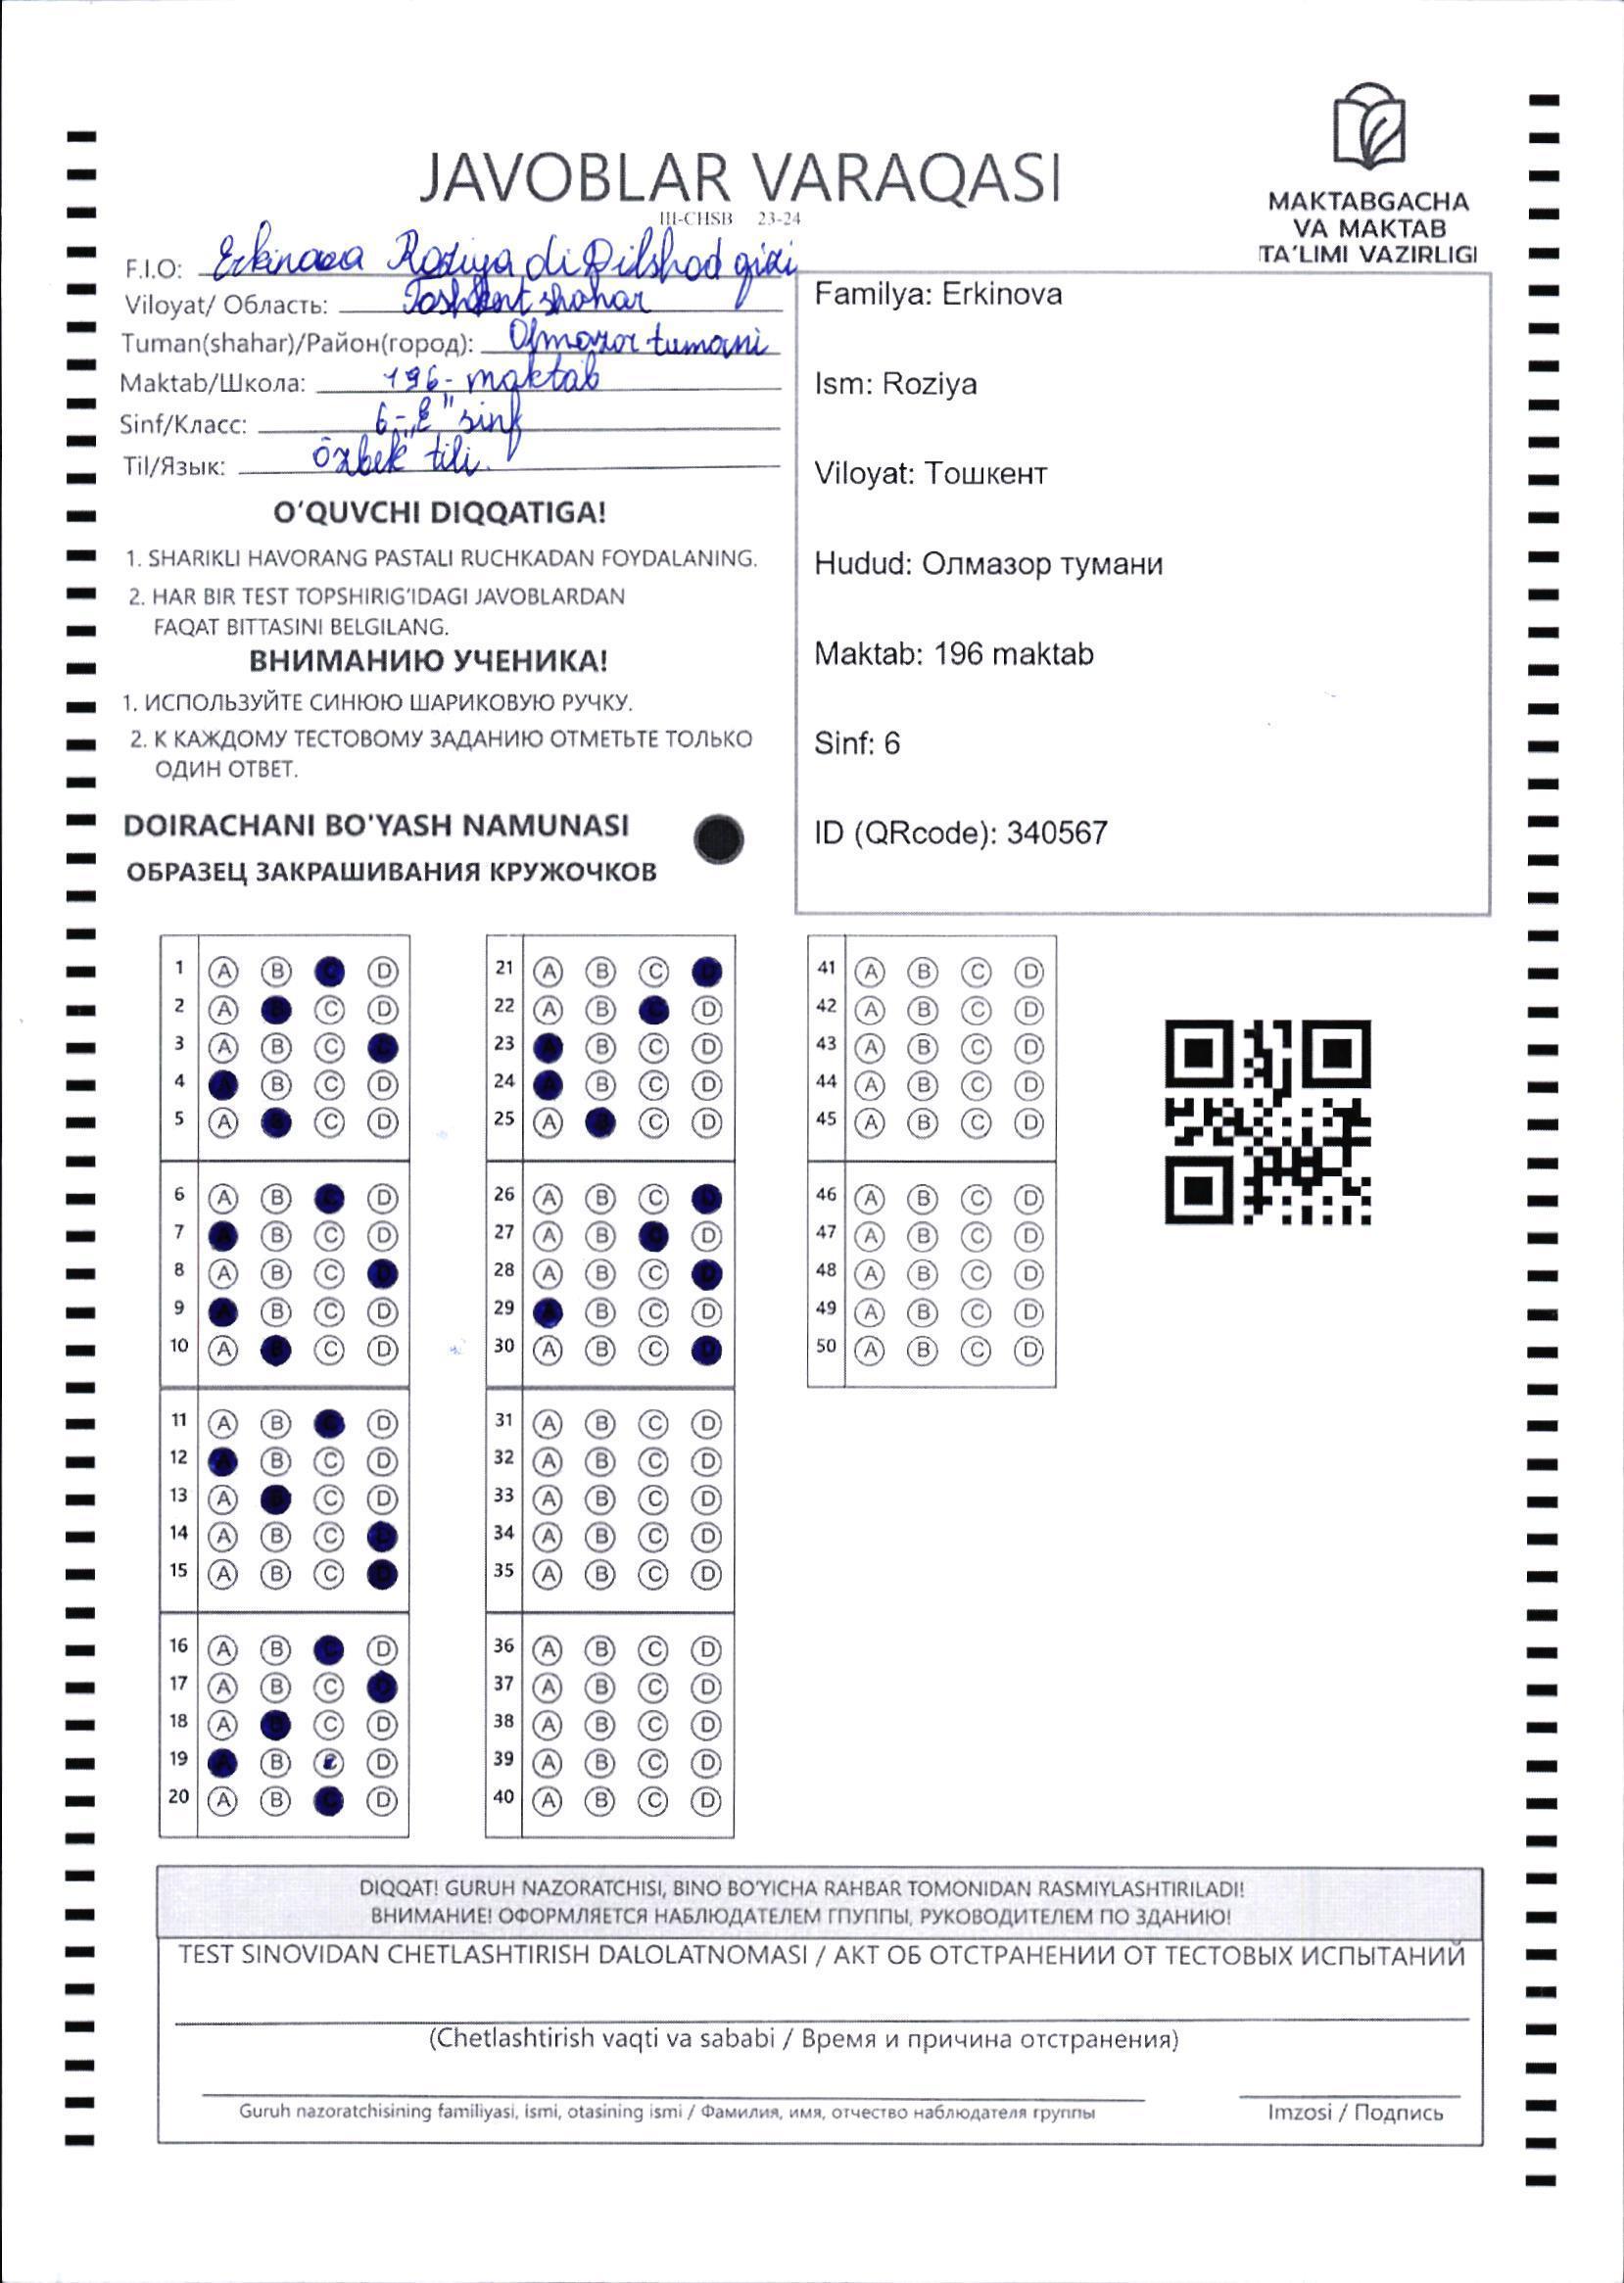 JAVOBLAR VARAQASI
III-CHSB 23-24
MAKTABGACHA
VA MAKTAB
TA'LIMI VAZIRLIGI
F.I.O: Erkinova Roziya di Dilshod qizi
Viloyat/ Область: Toshkent shahar
Tuman(shahar)/Район(город): Olmazor tumani
Maktab/Школа: 196- maktab
Sinf/Класс: 6-„E" sinf
Til/Язык: õzbek tili.
O'QUVCHI DIQQATIGA!
1. SHARIKLI HAVORANG PASTALI RUCHKADAN FOYDALANING.
2. HAR BIR TEST TOPSHIRIG'IDAGI JAVOBLARDAN
FAQAT BITTASINI BELGILANG.
ВНИМАНИЮ УЧЕНИКА!
1. ИСПОЛЬЗУЙТЕ СИНЮЮ ШАРИКОВУЮ РУЧКУ.
2. К КАЖДОМУ ТЕСТОВОМУ ЗАДАНИЮ ОТМЕТЬТЕ ТОЛЬКО
ОДИН ОТВЕТ.
DOIRACHANI BO'YASH NAMUNASI
ОБРАЗЕЦ ЗАКРАШИВАНИЯ КРУЖОЧКОВ
Familya: Erkinova
Ism: Roziya
Viloyat: Тошкент
Hudud: Олмазор тумани
Maktab: 196 maktab
Sinf: 6
ID (QRcode): 340567
1 A B C D
2 A B C D
3 A B C D
4 A B C D
5 A B C D
6 A B C D
7 A B C D
8 A B C D
9 A B C D
10 A B C D
11 A B C D
12 A B C D
13 A B C D
14 A B C D
15 A B C D
16 A B C D
17 A B C D
18 A B C D
19 A B C D
20 A B C D
21 A B C D
22 A B C D
23 A B C D
24 A B C D
25 A B C D
26 A B C D
27 A B C D
28 A B C D
29 A B C D
30 A B C D
31 A B C D
32 A B C D
33 A B C D
34 A B C D
35 A B C D
36 A B C D
37 A B C D
38 A B C D
39 A B C D
40 A B C D
41 A B C D
42 A B C D
43 A B C D
44 A B C D
45 A B C D
46 A B C D
47 A B C D
48 A B C D
49 A B C D
50 A B C D
DIQQAT! GURUH NAZORATCHISI, BINO BO'YICHA RAHBAR TOMONIDAN RASMIYLASHTIRILADI!
ВНИМАНИЕ! ОФОРМЛЯЕТСЯ НАБЛЮДАТЕЛЕМ ГПУППЫ, РУКОВОДИТЕЛЕМ ПО ЗДАНИЮ!
TEST SINOVIDAN CHETLASHTIRISH DALOLATNOMASI / АКТ ОБ ОТСТРАНЕНИИ ОТ ТЕСТОВЫХ ИСПЫТАНИЙ
(Chetlashtirish vaqti va sababi / Время и причина отстранения)
Guruh nazoratchisining familiyasi, ismi, otasining ismi / Фамилия, имя, отчество наблюдателя группы
Imzosi / Подпись